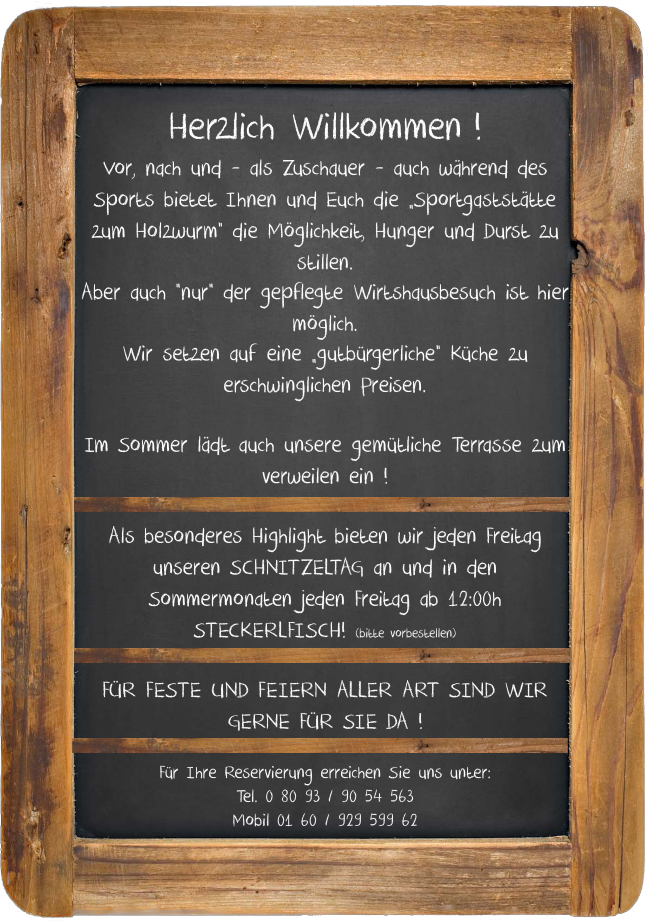 Herzlich Willkommen !
Vor, nach und - als Zuschauer - auch während des
Sports bietet Ihnen und Euch die „Sportgaststätte
zum Holzwurm" die Möglichkeit, Hunger und Durst zu
stillen.
Aber auch "nur" der gepflegte Wirtshausbesuch ist hier
möglich.
Wir setzen auf eine „gutbürgerliche" Küche zu
erschwinglichen Preisen.
Im Sommer lädt auch unsere gemütliche Terrasse zum
verweilen ein !
Als besonderes Highlight bieten wir jeden Freitag
unseren SCHNITZELTAG an und in den
Sommermonaten jeden Freitag ab 12:00h
STECKERLFISCH! (bitte vorbestellen)
FÜR FESTE UND FEIERN ALLER ART SIND WIR
GERNE FÜR SIE DA !
Für Ihre Reservierung erreichen Sie uns unter:
Tel. 0 80 93 / 90 54 563
Mobil 01 60 / 929 599 62